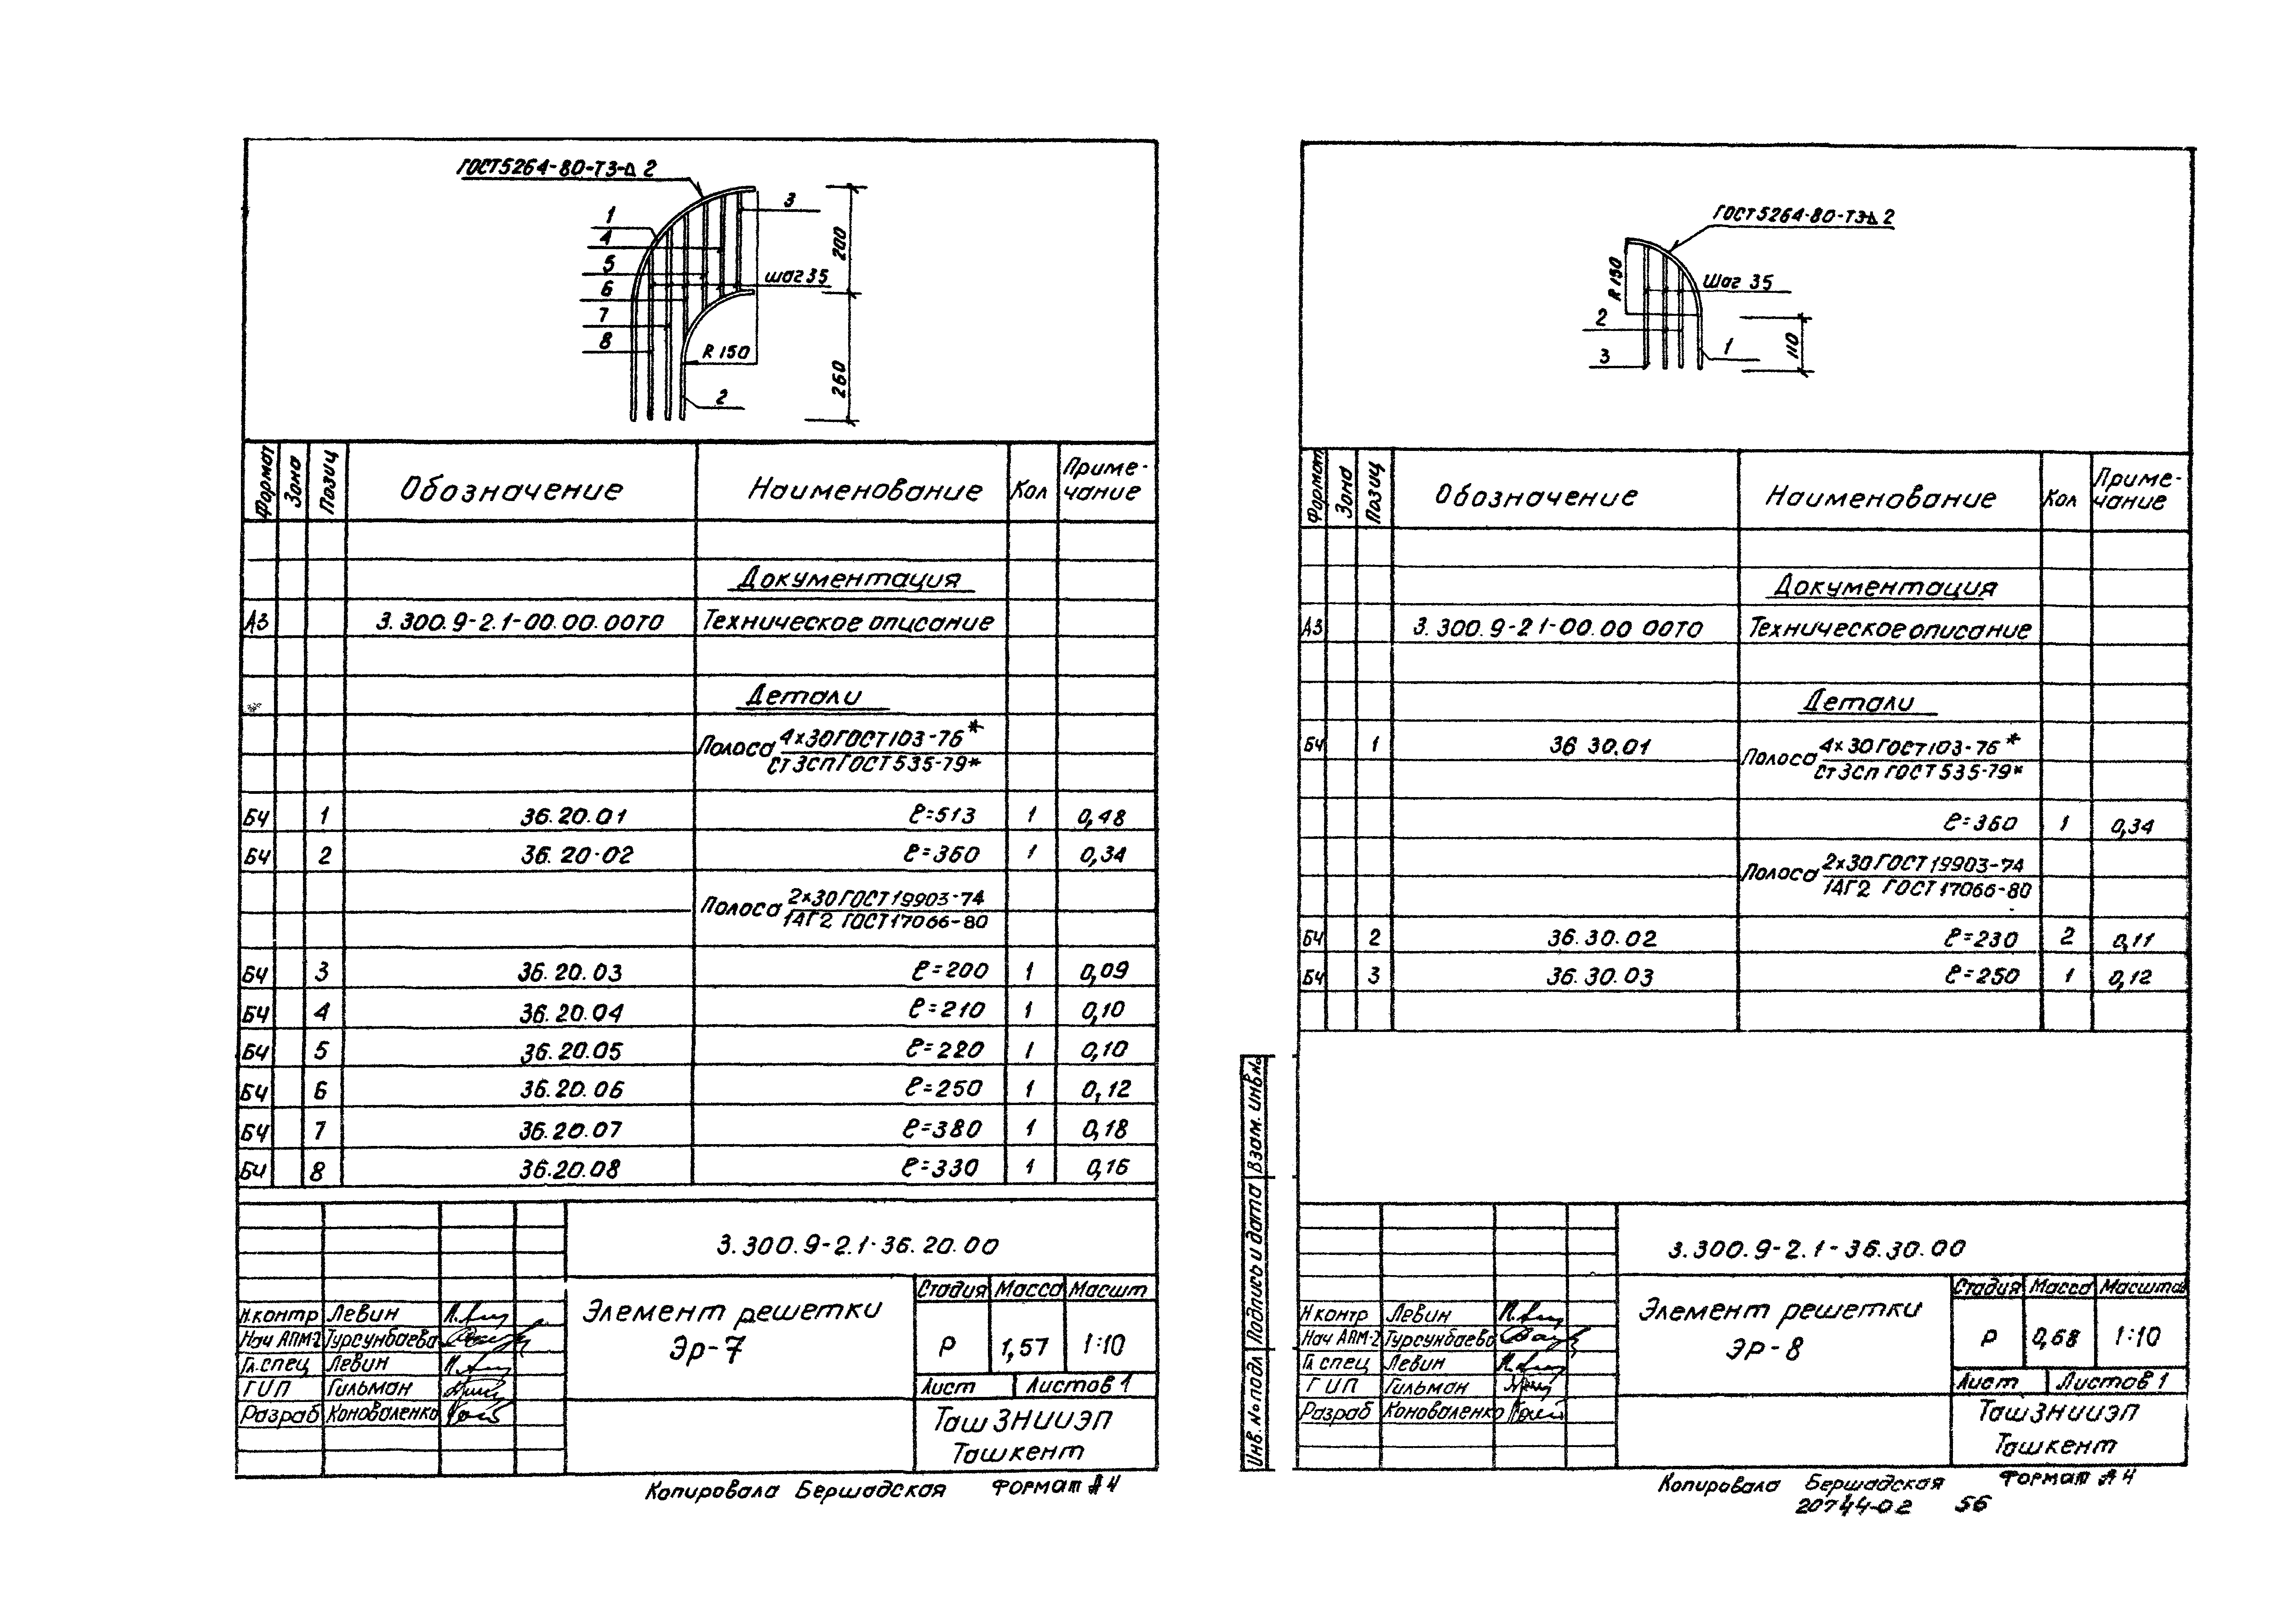 ГОСТ5264-80-Т3-Δ 2
1
3
4
200
5
шаг 35
6
7
8
R 150
260
2
Формат Зона Позиц Обозначение Наименование Кол Приме-
чание
Документация
А3 3.300.9-2.1-00.00.00ТО Техническое описание
Детали
Полоса 4×30 ГОСТ 103-76*
Ст3сп ГОСТ 535-79*
БЧ 1 36.20.01 ℓ=513 1 0,48
БЧ 2 36.20.02 ℓ=360 1 0,34
Полоса 2×30 ГОСТ 19903-74
14Г2 ГОСТ 17066-80
БЧ 3 36.20.03 ℓ=200 1 0,09
БЧ 4 36.20.04 ℓ=210 1 0,10
БЧ 5 36.20.05 ℓ=220 1 0,10
БЧ 6 36.20.06 ℓ=250 1 0,12
БЧ 7 36.20.07 ℓ=380 1 0,18
БЧ 8 36.20.08 ℓ=330 1 0,16
3.300.9-2.1-36.20.00
Элемент решетки
Эр-7
Стадия Масса Масшт
Р 1,57 1:10
Лист Листов 1
Н.контр Левин
Нач АПМ-2 Турсунбаева
Гл.спец Левин
ГИП Гильман
Разраб Коноваленко
ТашЗНИИЭП
Ташкент
Копировала Бершадская Формат А4
ГОСТ5264-80-Т3-Δ 2
R 150
Шаг 35
2
1
110
3
Формат Зона Позиц Обозначение Наименование Кол Приме-
чание
Документация
А3 3.300.9-2 1-00.00 00ТО Техническое описание
Детали
БЧ 1 36 30.01 Полоса 4×30 ГОСТ 103-76*
Ст3сп ГОСТ 535-79*
ℓ=360 1 0,34
Полоса 2×30 ГОСТ 19903-74
14Г2 ГОСТ 17066-80
БЧ 2 36.30.02 ℓ=230 2 0,11
БЧ 3 36.30.03 ℓ=250 1 0,12
Инв. № подл Подпись и дата Взам. инв №
3.300.9-2.1-36.30.00
Элемент решетки
ЭР-8
Стадия Масса Масштаб
Р 0,68 1:10
Лист Листов 1
Н контр Левин
Нач АПМ-2 Турсунбаева
Гл спец Левин
ГИП Гильман
Разраб Коноваленко
ТашЗНИИЭП
Ташкент
Копировала Бершадская Формат А4
20744-02 56